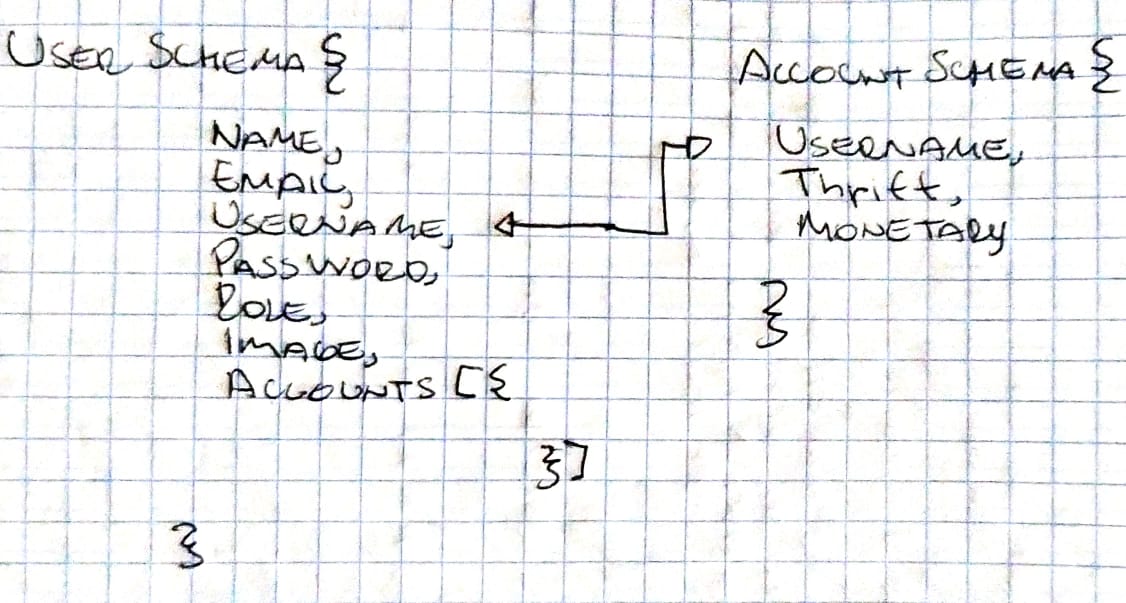 USER SCHEMA {
NAME,
EMAIL,
USERNAME,
PASSWORD,
ROLE,
IMAGE,
ACCOUNTS [{
}]
}
ACCOUNT SCHEMA {
USERNAME,
Thrift,
MONETARY
}